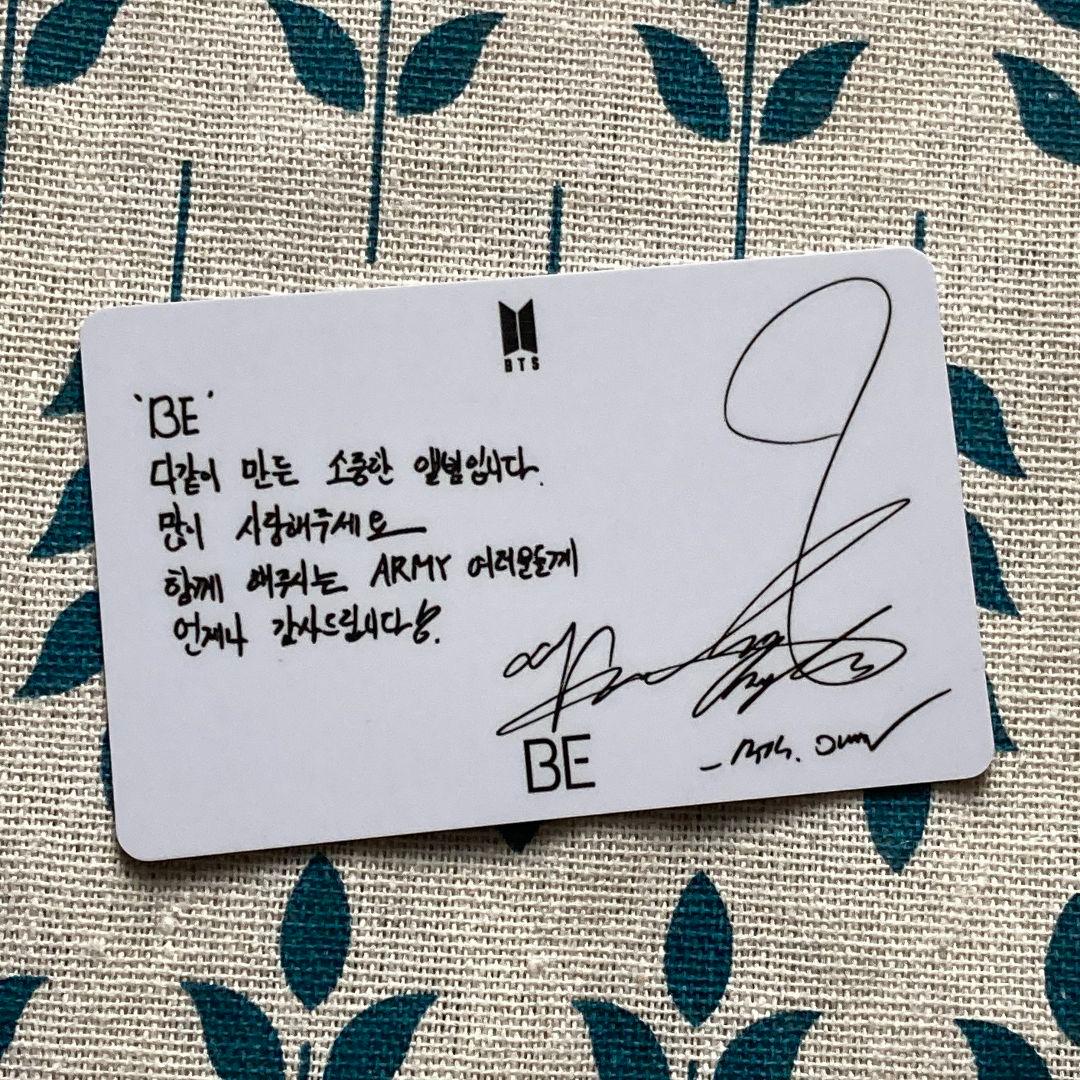 BTS
'BE'
다같이 만든 소중한 앨범입니다.
많이 사랑해주세요
함께 해주시는 ARMY 여러분들께
언제나 감사드립니다
BE